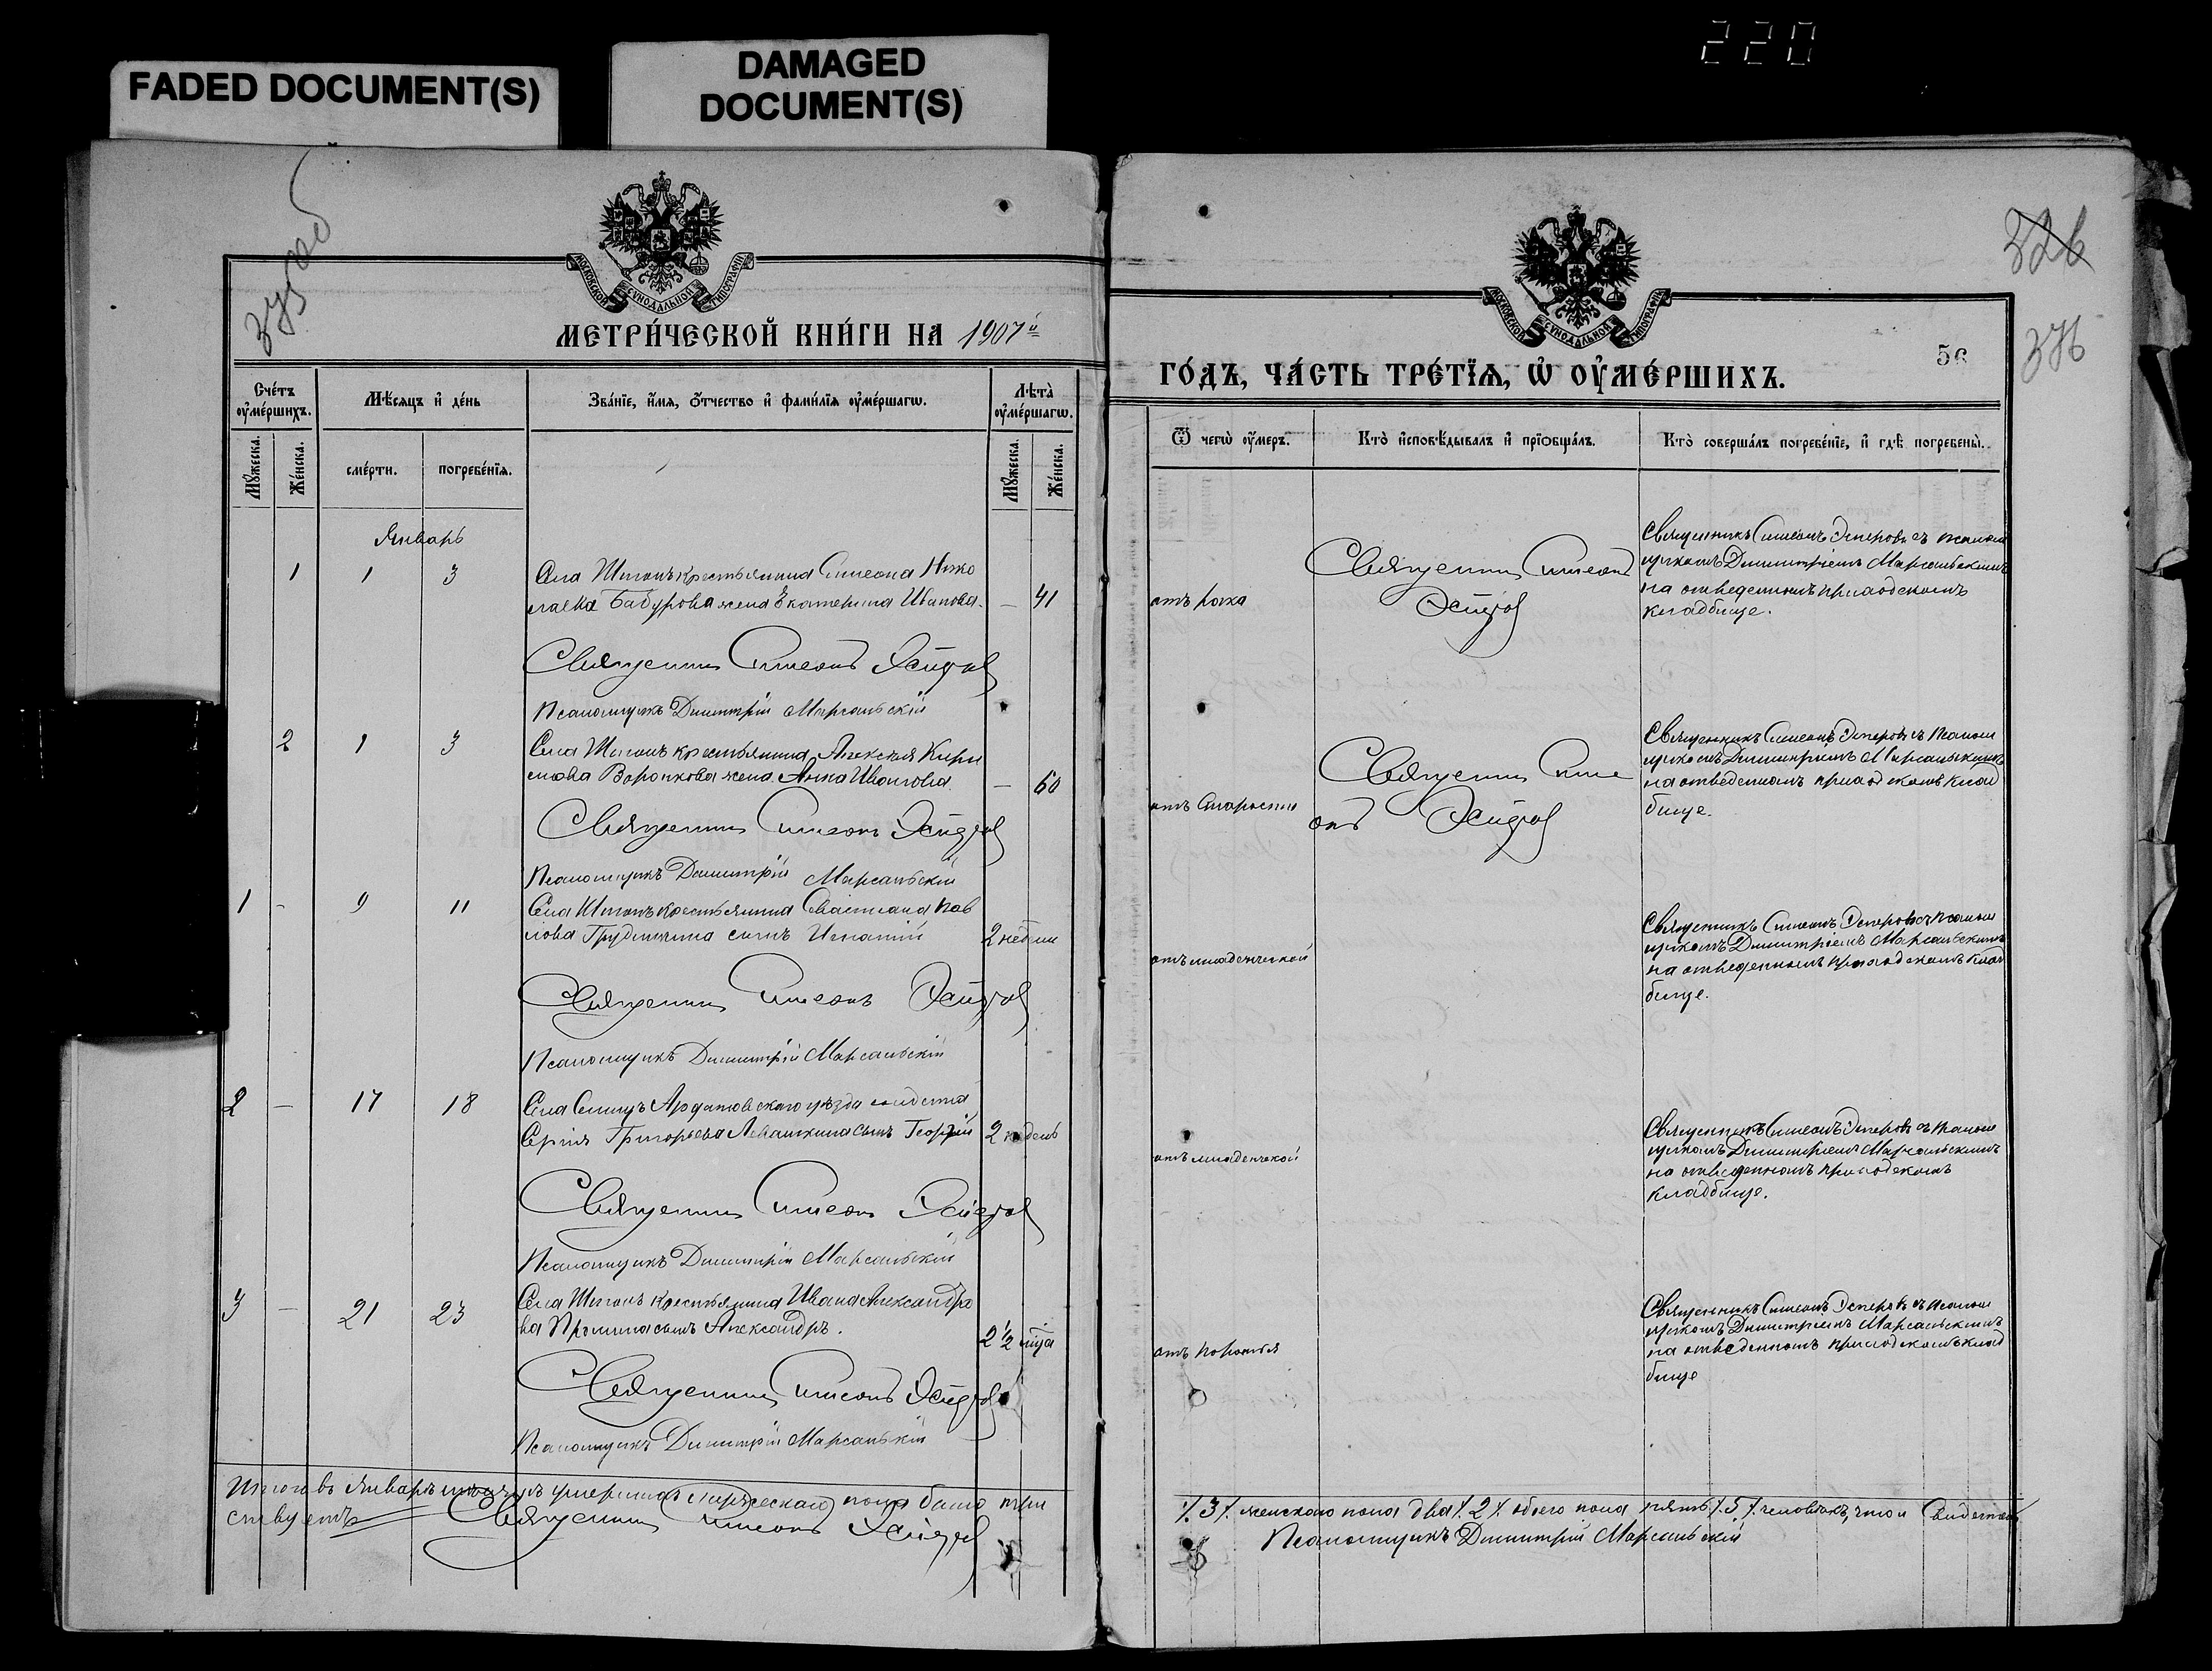 FADED DOCUMENT(S)
DAMAGED
DOCUMENT(S)
220
375 об
МОСКОВСКОЙ СѴНОДАЛЬНОЙ ТИПОГРАФІИ
МЕТРИ́ЧЕСКОЙ КНИ́ГИ НА 1907й
Сче́тъ ᲂу҆ме́ршихъ.
Мѣ́сяцъ и҆ де́нь
Зва́нїе, и҆́мя, ѻ҆́тчество и҆ фами́лїя ᲂу҆ме́ршагѡ.
Лѣ́та ᲂу҆ме́ршагѡ.
Мꙋ́жеска.
Же́нска.
сме́рти.
погребе́нїя.
Мꙋ́жеска.
Же́нска.
Январь
1 1 3 Села Шигонъ крестьянина Симеона Нико
лаева Бабурова жена Екатерина Иванова. — 41
Священникъ Симеонъ Эсперовъ
Псаломщикъ Димитрій Марсальскій
2 1 3 Села Шигонъ крестьянина Алексея Кири
лова Воронкова жена Анна Иванова — 60
Священникъ Симеонъ Эсперовъ
Псаломщикъ Димитрій Марсальскій
1 - 9 11 Села Шигонъ крестьянина Павлова
сынъ Игнатій 2 недели
Священникъ Симеонъ Эсперовъ
Псаломщикъ Димитрій Марсальскій
2 — 17 18 Села Ардатовскаго уѣзда солдата
Сергія Григорьева Левашкина сынъ Георгій 2 недель
Священникъ Симеонъ Эсперовъ
Псаломщикъ Димитрій Марсальскій
3 — 21 23 Села Шигонъ крестьянина Ивана Александро
ва сынъ Александръ. 2 1/2 года
Священникъ Симеонъ Эсперовъ
Псаломщикъ Димитрій Марсальскій
Итого въ Январѣ мѣсяцѣ умершихъ мужескаго пола было три
ствуетъ Священникъ Симеонъ Эсперовъ
326
376
56
МОСКОВСКОЙ СѴНОДАЛЬНОЙ ТИПОГРАФІИ
ГО́ДЪ, ЧА́СТЬ ТРЕ́ТЇЯ, Ѡ҆ ОУ҆МЕ́РШИХЪ.
Ѿ чегѡ̀ ᲂу҆́меръ.
Кто̀ и҆сповѣ́дывалъ и҆ прїѻбща́лъ.
Кто̀ соверша́лъ погребе́нїе, и҆ гдѣ̀ погребены̀.
отъ рака
Священникъ Симеонъ
Эсперовъ
Священникъ Симеонъ Эсперовъ съ псалом
щикомъ Димитріемъ Марсальскимъ
на отведенномъ приходскомъ
кладбище.
отъ старости
Священникъ Симе
онъ Эсперовъ
Священникъ Симеонъ Эсперовъ съ псалом
щикомъ Димитріемъ Марсальскимъ
на отведенномъ приходскомъ клад
бище.
отъ младенческой
Священникъ Симеонъ Эсперовъ съ псалом
щикомъ Димитріемъ Марсальскимъ
на отведенномъ приходскомъ клад
бище.
отъ младенческой
Священникъ Симеонъ Эсперовъ съ псалом
щикомъ Димитріемъ Марсальскимъ
на отведенномъ приходскомъ
кладбище.
отъ поноса
Священникъ Симеонъ Эсперовъ съ псалом
щикомъ Димитріемъ Марсальскимъ
на отведенномъ приходскомъ клад
бище
/. 3 /. женскаго пола два /. 2 /. обоего пола пять /. 5 /. человѣкъ, что и свидетель
Псаломщикъ Димитрій Марсальскій